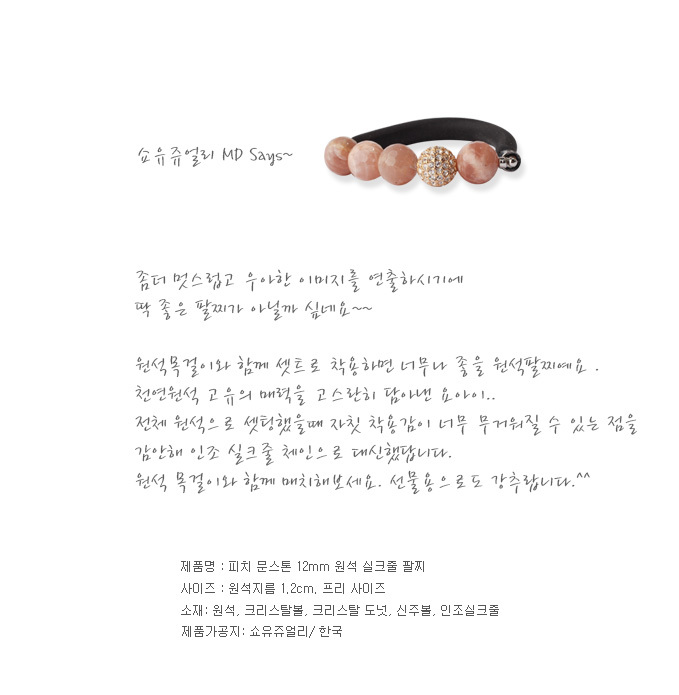 쇼유쥬얼리 MD Says~
좀더 멋스럽고 우아한 이미지를 연출하시기에
딱 좋은 팔찌가 아닐까 싶네요~~
원석목걸이와 함께 셋트로 착용하면 너무나 좋을 원석팔찌예요 .
천연원석 고유의 매력을 고스란히 담아낸 요아이..
전체 원석으로 셋팅했을때 자칫 착용감이 너무 무거워질 수 있는 점을
감안해 인조 실크줄 체인으로 대신했답니다.
원석 목걸이와 함께 매치해보세요. 선물용으로도 강추랍니다.^^
제품명 : 피치 문스톤 12mm 원석 실크줄 팔찌
사이즈 : 원석지름 1.2cm, 프리 사이즈
소재: 원석, 크리스탈볼, 크리스탈 도넛, 신주볼, 인조실크줄
제품가공지: 쇼유쥬얼리/ 한국